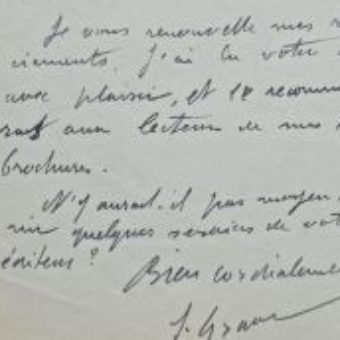 Je vous renouvelle mes r
ciements. J'ai lu votre
avec plaisir, et le recomm
rai aux lecteurs de mes
brochures.
N'y aurait-il pas moyen
nir quelques services de vot
éditeur ?
Bien cordialeme
J. Grave